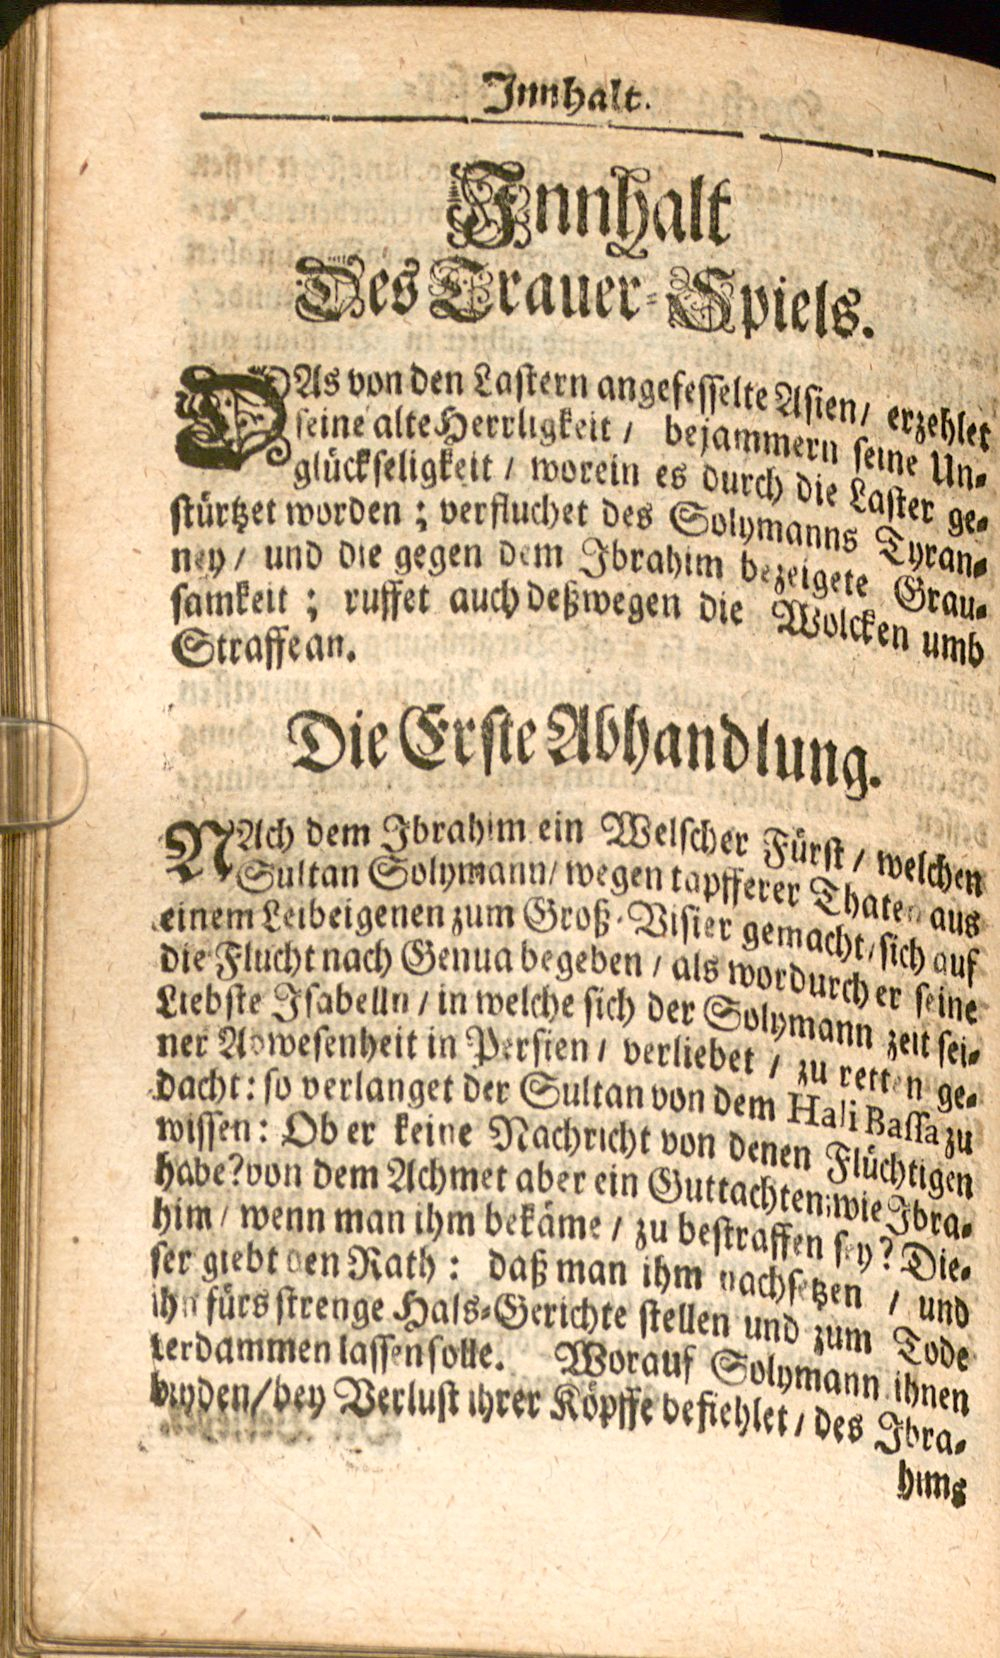 Jnnhalt.
Jnnhalt
Des Trauer-Spiels.
DAs von den Lastern angefesselte Asien/ erzehlet
seine alte Herrligkeit / bejammern seine Un-
glückseligkeit / worein es durch die Laster ge-
stürtzet worden ; verfluchet des Solymanns Tyran-
ney / und die gegen dem Jbrahim bezeigete Grau-
samkeit ; ruffet auch deßwegen die Wolcken umb
Straffe an.
Die Erste Abhandlung.
NAch dem Jbrahim ein Welscher Fürst / welchen
Sultan Solymann/ wegen tapfferer Thaten aus
einem Leibeigenen zum Groß-Visier gemacht/ sich auf
die Flucht nach Genua begeben / als wordurch er seine
Liebste Jsabelln / in welche sich der Solymann zeit sei-
ner Abwesenheit in Persien / verliebet / zu retten ge-
dacht: so verlanget der Sultan von dem Hali Bassa zu
wissen: Ob er keine Nachricht von denen Flüchtigen
habe? von dem Achmet aber ein Guttachten; wie Jbra-
him / wenn man ihm bekäme / zu bestraffen sey? Die-
ser giebt den Rath : daß man ihm nachsetzen / und
ihn fürs strenge Hals-Gerichte stellen und zum Tode
verdammen lassen solle. Worauf Solymann ihnen
beyden/ bey Verlust ihrer Köpffe befiehlet / des Jbra-
hims